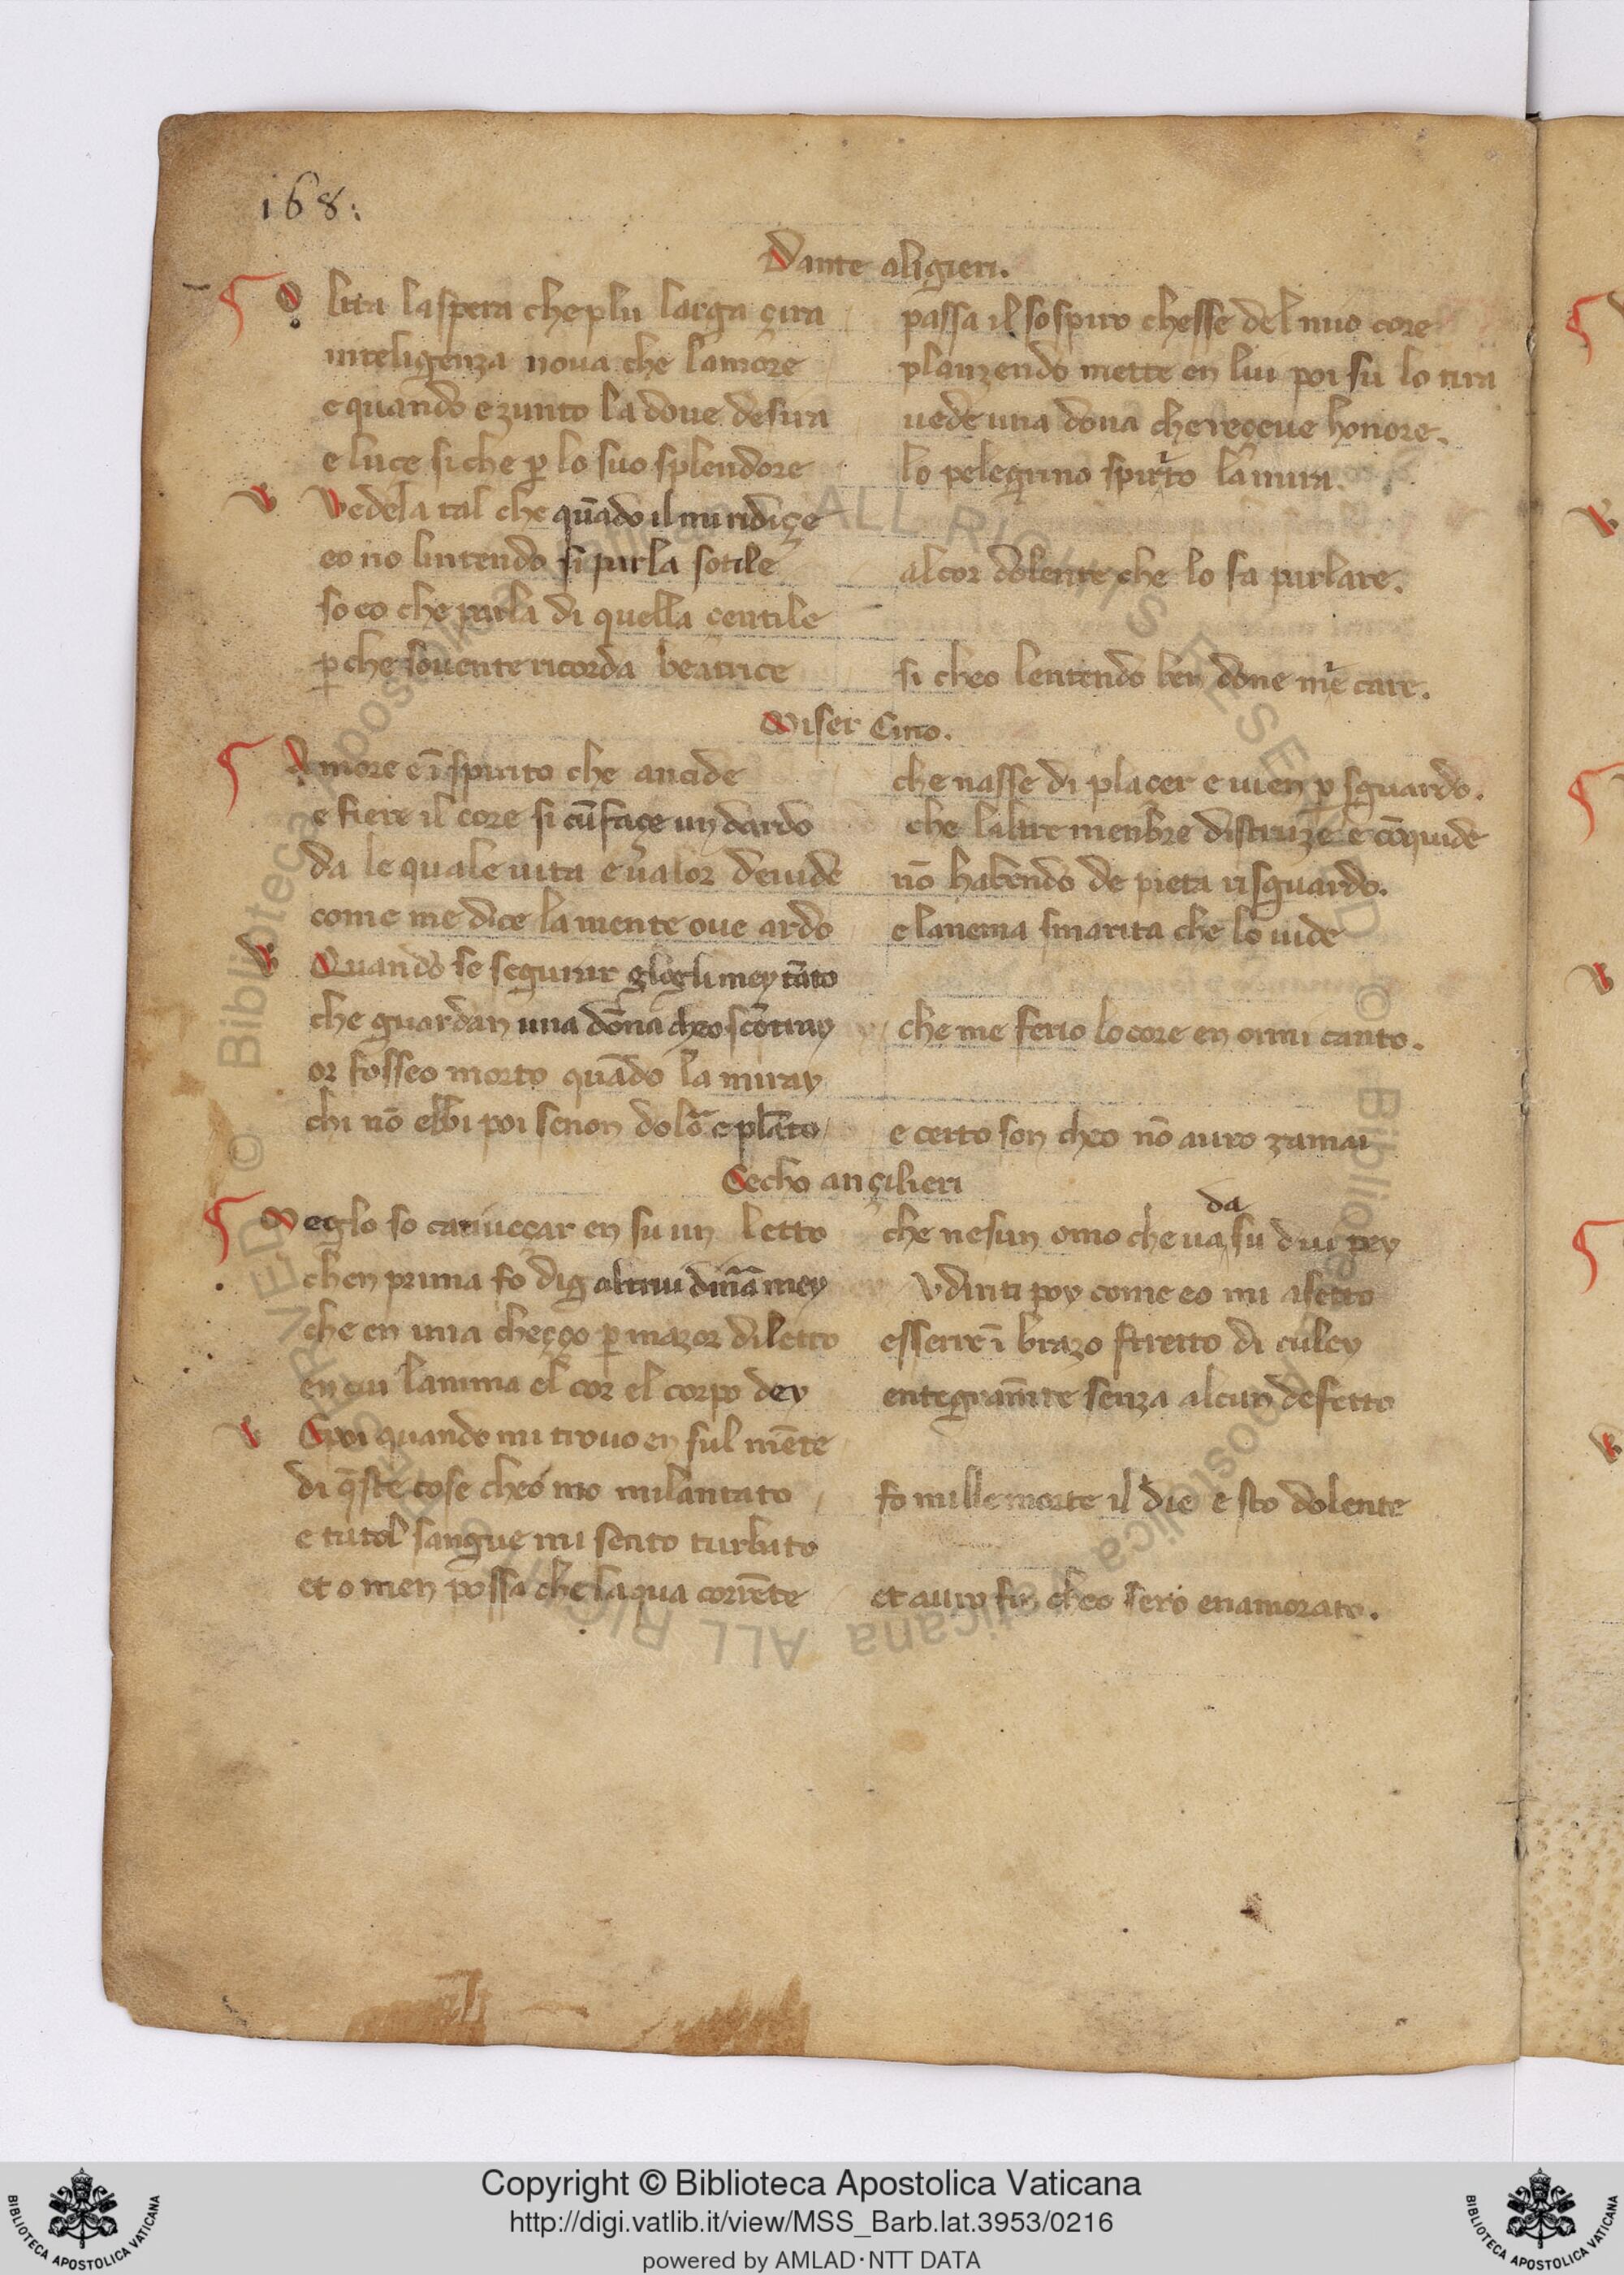 168:
Dante aligieri.
Oltra laspera cheplu larga çira passa il sospiro chesse del mio core
inteligenza noua che lamore planzendo mette en lui poi su lo tira
e quando e zunto la doue desira uede una dona che reçeue honore.
e luce si che ꝑ lo suo splendore lo pelegrino spirito la mira.
Vedela tal che quādo il mi ridiçe
eo no lintendo si parla sotile al cor dolente che lo fa parlare.
so eo che parla di quella çentile
ꝑche souente ricorda beatrice si cheo lentendo ben done mie care.
Miser Cino.
Amore e ī spirito che ancide che nasse di plaçer e uien ꝑ sguardo.
e fiere il core si cū façe un dardo che laltre menbre distruze e cōquide
da le quale uita e ualor deuide nō habendo de pieta risguardo.
come me dice la mente oue ardo e lanema smarita che lo uide
Quando se segurar gloglimey tāto
che guardan una dōna cheo scōtray che me ferio lo core en onni canto.
or fosseo morto quādo la miray
chi nō ebbi poi senon dolor e plāto e certo son cheo nō auro zamai
Cecho ançilieri
Meglo so catiueçar en su un letto che nesun omo che ua su dui pey
da
chen prima fo dig altrui dinā mey Vdiriti poy come eo mi asetto
che en una cheçço ꝑ mazor diletto esserre ī brazo stretto di culey
en cui lanima el cor el corpo dey entegramēte senza alcun defetto
Epoi quando mi trouo en sul niēte
di q̄ste cose cheo mo milantato fo mille morte il die e sto dolente
e tutol sangue mi sento turbato
et o men possa che laqua corrēte et auro fin cheo sero enamorato.
Copyright © Biblioteca Apostolica Vaticana
http://digi.vatlib.it/view/MSS_Barb.lat.3953/0216
powered by AMLAD·NTT DATA
BIBLIOTECA APOSTOLICA VATICANA
BIBLIOTECA APOSTOLICA VATICANA